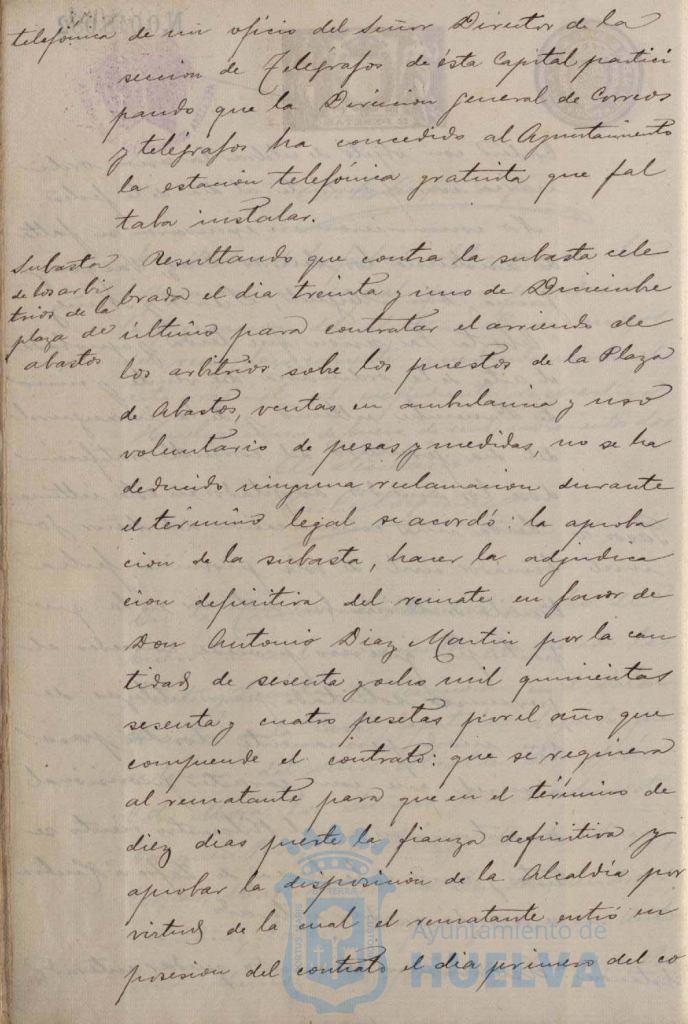 telefónica de un oficio del Señor Director de la
seccion de Telégrafos de ésta Capital partici
pando que la Direccion general de Correos
y telégrafos ha concedido al Ayuntamiento
la estación telefónica gratuita que fal
taba instalar.
Subasta
de los arbi
trios de la
plaza de
abastos
Resultando que contra la subasta cele
brada el dia treinta y uno de Diciembre
último para contratar el arriendo de
los arbitrios sobre los puestos de la Plaza
de Abastos, ventas en ambulancia y uso
voluntario de pesas y medidas, no se ha
deducido ninguna reclamacion durante
el término legal se acordó: la aproba
cion de la subasta, hacer la adjudica
cion definitiva del remate en favor de
Don Antonio Diaz Martin por la can
tidad de sesenta y ocho mil quinientas
sesenta y cuatro pesetas por el año que
comprende el contrato: que se requiera
al rematante para que en el término de
diez dias preste la fianza definitiva y
aprobar la disposicion de la Alcaldía por
virtud de la cual el rematante entró en
posesion del contrato el dia primero del co
Ayuntamiento de
HUELVA